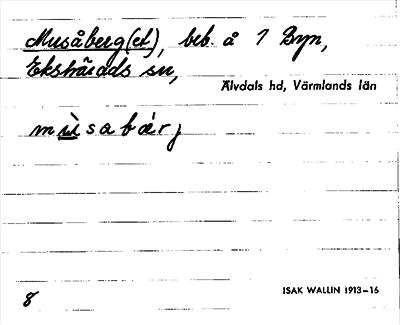 Musåberg(et), beb. å 1 Byn,
Ekshärads sn,
Älvdals hd, Värmlands län
mùsabárj
8
ISAK WALLIN 1913–16